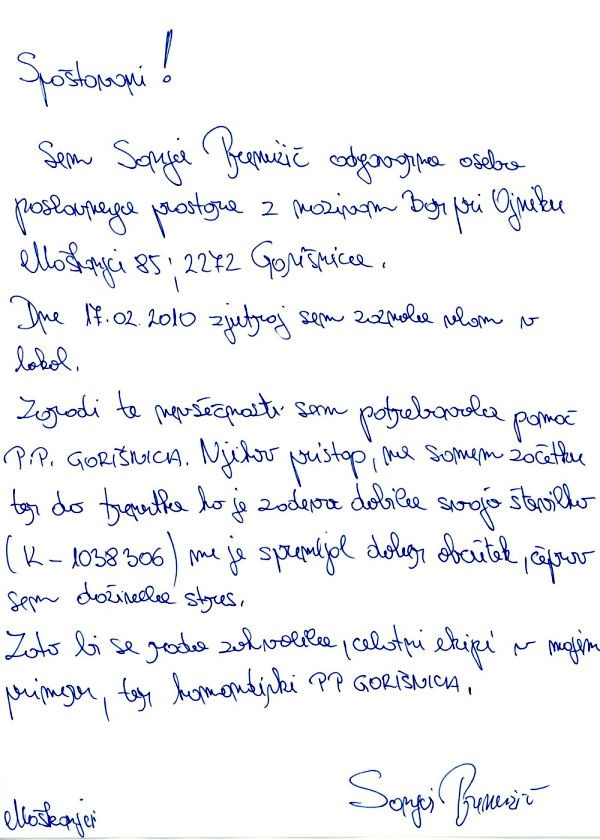 Spoštovani!
Sem Sonja Brenčič odgovorna oseba
poslovnega prostora z nazivom Bar pri Ojniku
Moškanjci 85, 2272 Gorišnica.
Dne 17.02.2010 zjutraj sem zaznala vlom v
lokal.
Zaradi te nevšečnosti sem potrebovala pomoč
P.P. GORIŠNICA. Njihov pristop, na samem začetku
ter do trenutka ko je zadeva dobila svojo številko
(K-1038306) me je spremljal dober občutek, čeprav
sem doživela stres.
Zato bi se rada zahvalila, celotni ekipi v mojem
primeru, ter komandirki PP GORIŠNICA.
Moškanjci
Sonja